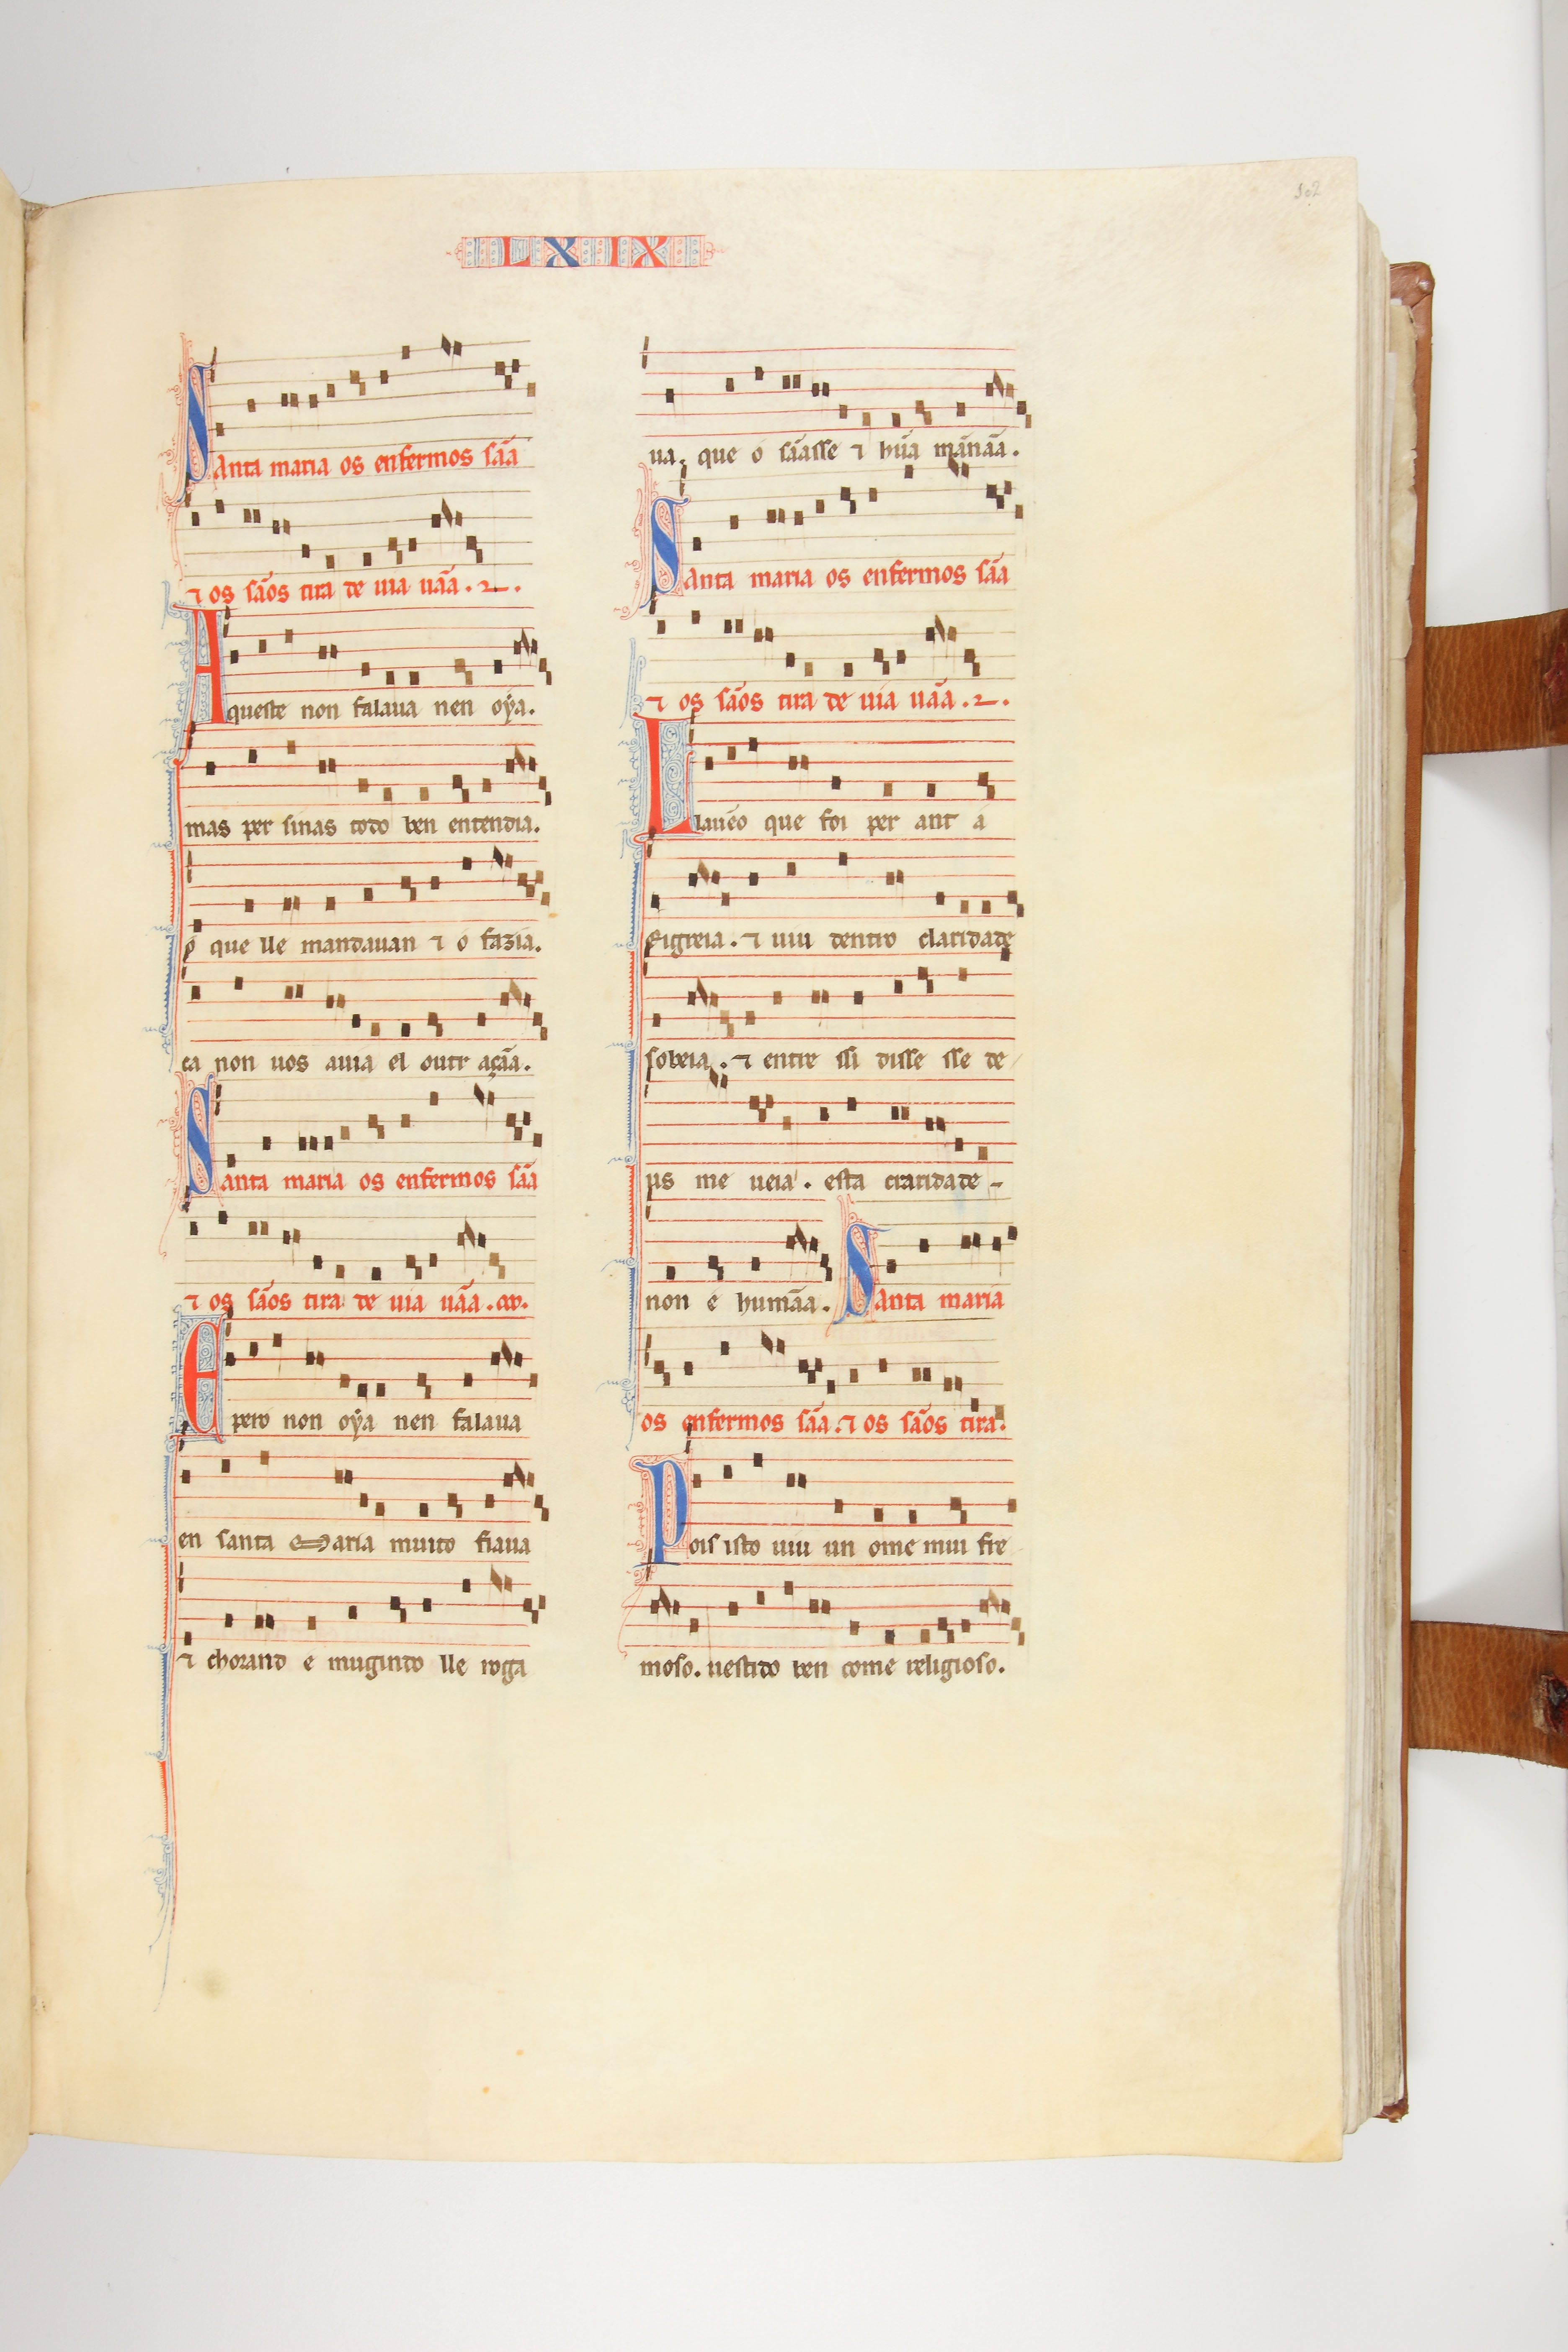 102
LXIX
Santa maria os enfermos sãa
⁊ os sãos tira de uia uãa.
Aqueste non falaua nen oýa.
mas per sinas todo ben entendia.
o que lle mandauan ⁊ ó fazia.
ca non uos auia el outr açãa.
Santa maria os enfermos sãa
⁊ os sãos tira de uia uãa.
Epero non oýa nen falaua
en santa Maria muito fiaua
⁊ chorand e mugindo lle roga
ua. que ó sãasse ⁊ hũa mãnãa.
Santa maria os enfermos sãa
⁊ os sãos tira de uia uãa.
Lauẽo que foi per ant a
eigreia. ⁊ uiu dentro claridade
sobeia. ⁊ entre ssi disse sse de
us me ueia. esta craridade
non é humãa. Santa maria
os enfermos sãa. ⁊ os sãos tira.
Pois isto uiu un ome mui fre
moso. uestido ben come religioso.